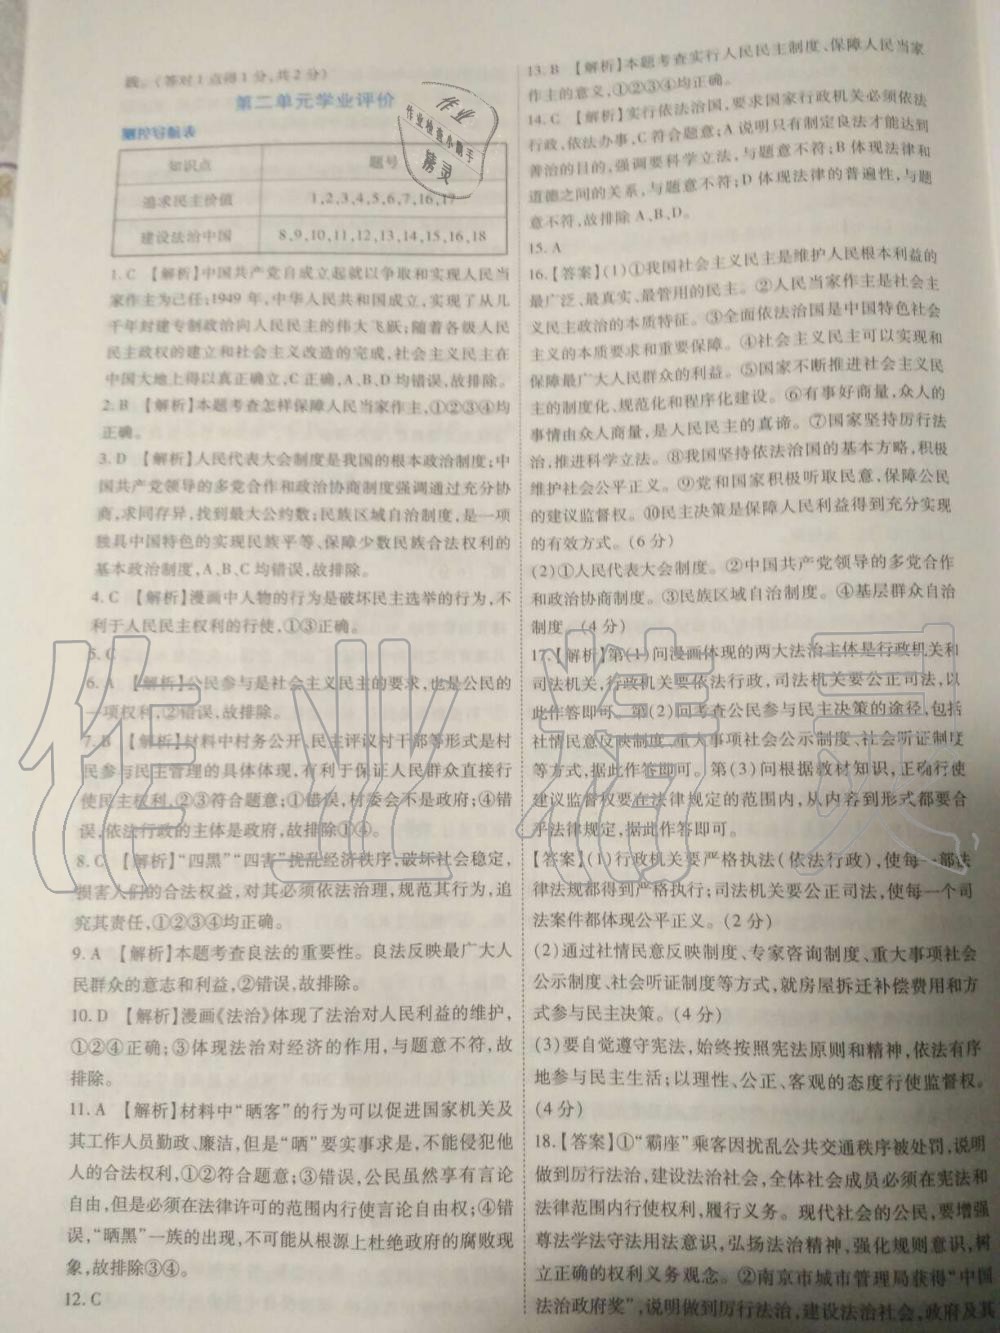 践。(答对1点得1分,共2分)
第二单元学业评价
测控导航表
知识点 题号
追求民主价值 1,2,3,4,5,6,7,16,17
建设法治中国 8,9,10,11,12,13,14,15,16,18
1. C 【解析】中国共产党自成立起就以争取和实现人民当
家作主为己任;1949 年,中华人民共和国成立,实现了从几
千年封建专制政治向人民民主的伟大飞跃;随着各级人民
民主政权的建立和社会主义改造的完成,社会主义民主在
中国大地上得以真正确立,C 正确,A、B、D 均错误,故排除。
2. B 【解析】本题考查怎样保障人民当家作主,①②③④均
正确。
3. D 【解析】人民代表大会制度是我国的根本政治制度;中
国共产党领导的多党合作和政治协商制度强调通过充分协
商,求同存异,找到最大公约数;民族区域自治制度,是一项
独具中国特色的实现民族平等、保障少数民族合法权利的
基本政治制度,A、B、C 均错误,故排除。
4. C 【解析】漫画中人物的行为是破坏民主选举的行为,不
利于人民民主权利的行使,①③正确。
5. C
6. A 【解析】公民参与是社会主义民主的要求,也是公民的
一项权利,②错误,故排除。
7. B 【解析】材料中村务公开、民主评议村干部等形式是村
民参与民主管理的具体体现,有利于保证人民群众直接行
使民主权利,②③符合题意;①错误,村委会不是政府;④错
误,依法行政的主体是政府,故排除①④。
8. C 【解析】“四黑”“四害”扰乱经济秩序,破坏社会稳定,
损害人们的合法权益,对其必须依法治理,规范其行为,追
究其责任,①②③④均正确。
9. A 【解析】本题考查良法的重要性。良法反映最广大人
民群众的意志和利益,②错误,故排除。
10. D 【解析】漫画《法治》体现了法治对人民利益的维护,
①②④正确;③体现法治对经济的作用,与题意不符,故
排除。
11. A 【解析】材料中“晒客”的行为可以促进国家机关及
其工作人员勤政、廉洁,但是“晒”要实事求是,不能侵犯他
人的合法权利,①②符合题意;③错误,公民虽然享有言论
自由,但是必须在法律许可的范围内行使言论自由权;④错
误,“晒黑”一族的出现,不可能从根源上杜绝政府的腐败现
象,故排除③④。
12. C
13. B 【解析】本题考查实行人民民主制度、保障人民当家
作主的意义,①②③④均正确。
14. C 【解析】实行依法治国,要求国家行政机关必须依法
行政,依法办事,C 符合题意;A 说明只有制定良法才能达到
善治的目的,强调要科学立法,与题意不符;B 体现法律和
道德之间的关系,与题意不符;D 体现法律的普遍性,与题
意不符,故排除 A、B、D。
15. A
16.【答案】(1)①我国社会主义民主是维护人民根本利益的
最广泛、最真实、最管用的民主。②人民当家作主是社会主
义民主政治的本质特征。③全面依法治国是中国特色社会
主义的本质要求和重要保障。④社会主义民主可以实现和
保障最广大人民群众的利益。⑤国家不断推进社会主义民
主的制度化、规范化和程序化建设。⑥有事好商量,众人的
事情由众人商量,是人民民主的真谛。⑦国家坚持厉行法
治,推进科学立法。⑧我国坚持依法治国的基本方略,积极
维护社会公平正义。⑨党和国家积极听取民意,保障公民
的建议监督权。⑩民主决策是保障人民利益得到充分实现
的有效方式。(6 分)
(2)①人民代表大会制度。②中国共产党领导的多党合作
和政治协商制度。③民族区域自治制度。④基层群众自治
制度。(4 分)
17.【解析】第(1)问漫画体现的两大法治主体是行政机关和
司法机关,行政机关要依法行政,司法机关要公正司法,以
此作答即可。第(2)问考查公民参与民主决策的途径,包括
社情民意反映制度、重大事项社会公示制度、社会听证制度
等方式,据此作答即可。第(3)问根据教材知识,正确行使
建议监督权要在法律规定的范围内,从内容到形式都要合
乎法律规定,据此作答即可。
【答案】(1)行政机关要严格执法(依法行政),使每一部法
律法规都得到严格执行;司法机关要公正司法,使每一个司
法案件都体现公平正义。(2 分)
(2)通过社情民意反映制度、专家咨询制度、重大事项社会
公示制度、社会听证制度等方式,就房屋拆迁补偿费用和方
式参与民主决策。(4 分)
(3)要自觉遵守宪法,始终按照宪法原则和精神,依法有序
地参与民主生活;以理性、公正、客观的态度行使监督权。
(4 分)
18.【答案】①“霸座”乘客因扰乱公共交通秩序被处罚,说明
做到厉行法治,建设法治社会,全体社会成员必须在宪法和
法律范围内行使权利,履行义务。现代社会的公民,要增强
尊法学法守法用法意识,弘扬法治精神,强化规则意识,树
立正确的权利义务观念。②南京市城市管理局获得“中国
法治政府奖”,说明做到厉行法治,建设法治社会,政府及其
作业
作业检查小帮手
作业精灵